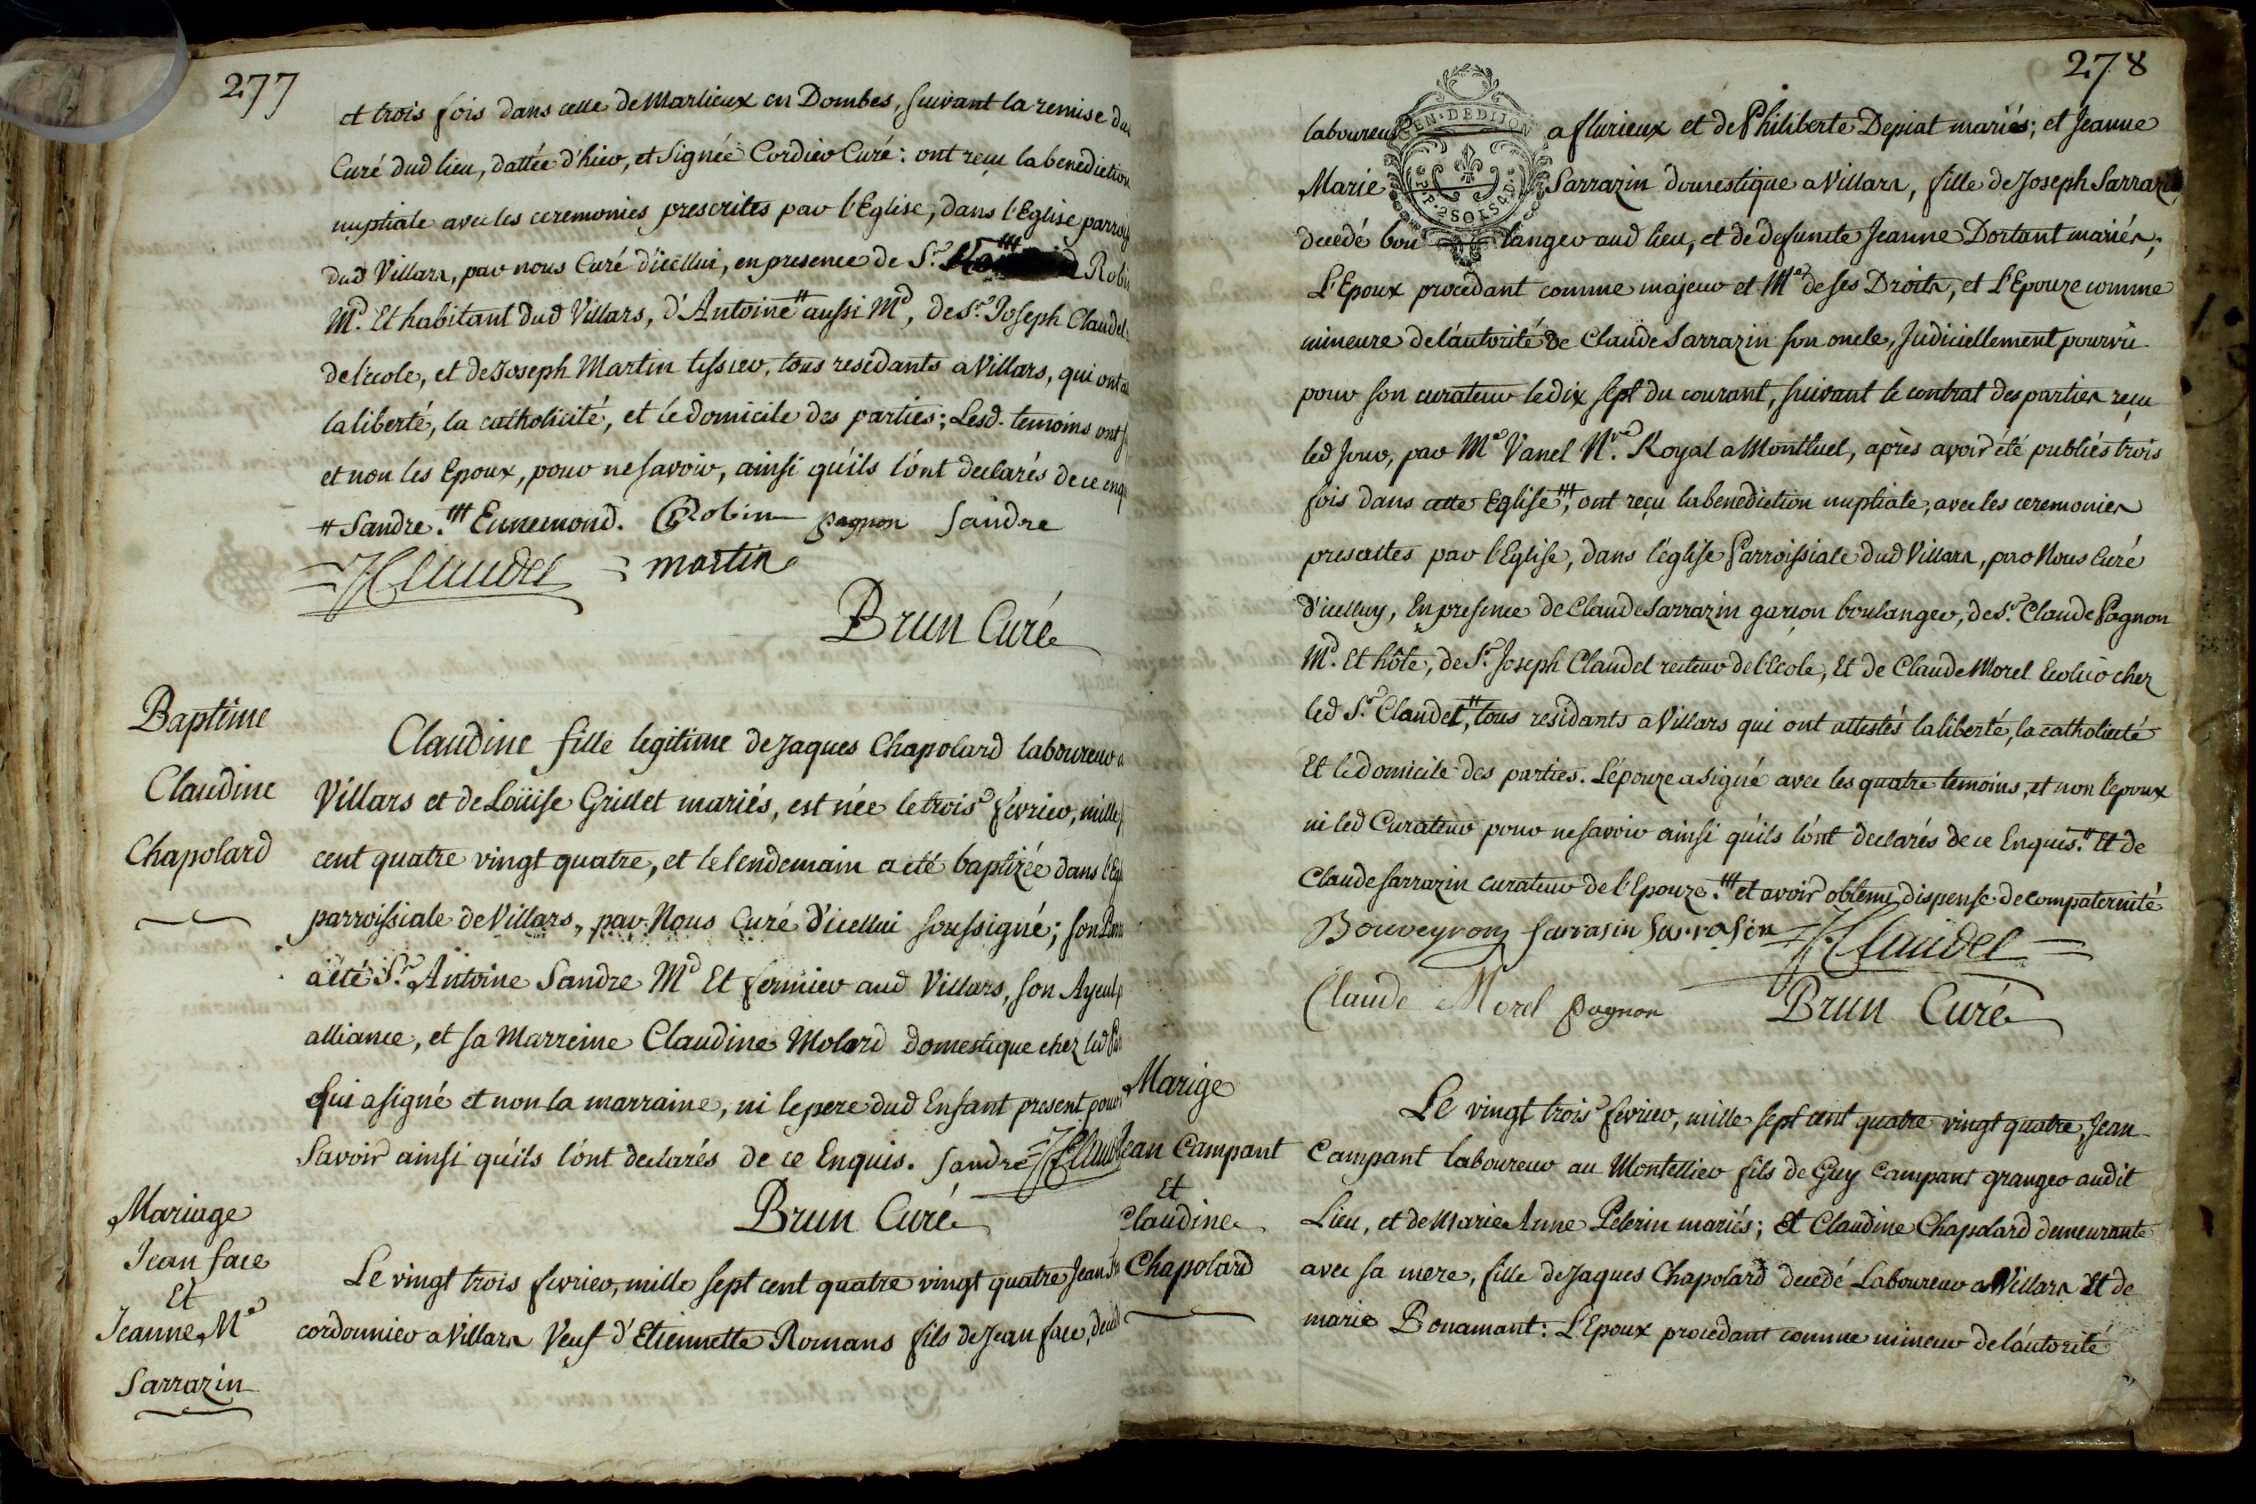 277
et trois fois dans celle de Marlieux en Dombes, suivant la remise du
Curé dud lieu, dattée d'hier, et signée Cordier Curé: ont reçu la benediction
nuptiale avec les ceremonies prescrites par l'Eglise, dans l'Eglise parroiss
dud Villars, par nous Curé d'icellui, en presence de Sr. ### Robin
Md. Et habitant dud Villars, d'Antoine # aussi Md, de Sr. Joseph Claudel
de l'ecole, et de Joseph Martin tissier, tous residants a Villars, qui ont
la liberté, la catholicité, et le domicile des parties; Lesd. temoins ont
et non les Epoux, pour ne savoir, ainsi qu'ils l'ónt declarés de ce enq
# Sandre. ### Ennemond. Robin pagnon sandre
JClaudel martin
Brun Curé
Baptême
Claudine
Chapolard
Claudine fille legitime de Jaques Chapolard laboureur a
Villars et de Loüise Grillet mariés, est née le trois fevrier, mille s
cent quatre vingt quatre, et le lendemain a eté baptizée dans l'Egl
parroissiale de Villars, par Nous Curé d'icellui soussigné; son Parr
a été Sr. Antoine Sandre Md Et fermier aud Villars, son Ayeul p
alliance, et sa Marreine Claudine Molard domestique chez led Pa
Qui a signé et non la marraine, ni le pere dud Enfant present pour
savoir ainsi qu'ils l'ónt declarés de ce Enquis. sandre JClaudel
Brun Curé
Mariage
Jean face
Et
Jeanne Me
Sarrazin
Le vingt trois fevrier, mille sept cent quatre vingt quatre Jean
cordonnier a Villars Veuf d'Etiennette Romans fils de Jean face, deced
278
laboureur a flurieux et de Philiberte Depiat mariés; et Jeanne
EN. DE DIJON
Marie Sarrazin domestique a Villars, fille de Joseph Sarrazin
decedé boulanger aud lieu, et de defuncte Jeanne Dortant mariés;
L'Epoux procedant comme majeur et Me de ses Droits, et L'Epouze comme
mineure de l'áutorité de Claude Sarrazin son oncle, Judiciellement pourvû
pour son curateur le dix sept du courant, suivant le contrat des parties reçu
led Jour, par Me Vanel Nre. Royal a Montluel, après avoir été publiés trois
fois dans cette Eglise ###, ont reçu la benediction nuptiale, avec les ceremonies
prescrites par l'Eglise, dans l'église Parroissiale dud Villars, par Nous Curé
d'icelluy, En presence de Claude Sarrazin garçon boulanger, de Sr. Claude Pagnon
Md. Et hôte, de Sr. Joseph Claudel recteur de l'ecole, Et de Claude Morel Ecolier chez
led Sr. Claudel, # tous residants a Villars qui ont attestés la liberté, la catholicité
Et le domicile des parties. L'épouze a signé avec les quatre temoins, et non l'epoux
ni led Curateur pour ne savoir ainsi qu'ils l'ónt declarés de ce Enquis. # Et de
Claude Sarrazin curateur de l'Epouze. ### et avoir obtenu dispense de compaternité
Bouveyron sarrasin sarrasin JClaudel
Claude Morel pagnon Brun Curé
Marige
Jean Campant
Et
Claudine
Chapolard
Le vingt trois fevrier, mille sept cent quatre vingt quatre, Jean
Campant laboureur au Montellier fils de Guy Campant granger audit
Lieu, et de Marie Anne Pelerin mariés; Et Claudine Chapolard demeurante
avec sa mere, fille de Jaques Chapolard decedé Laboureur a Villars Et de
marie Bonamant: L'Epoux procedant comme mineur de l'áutorité